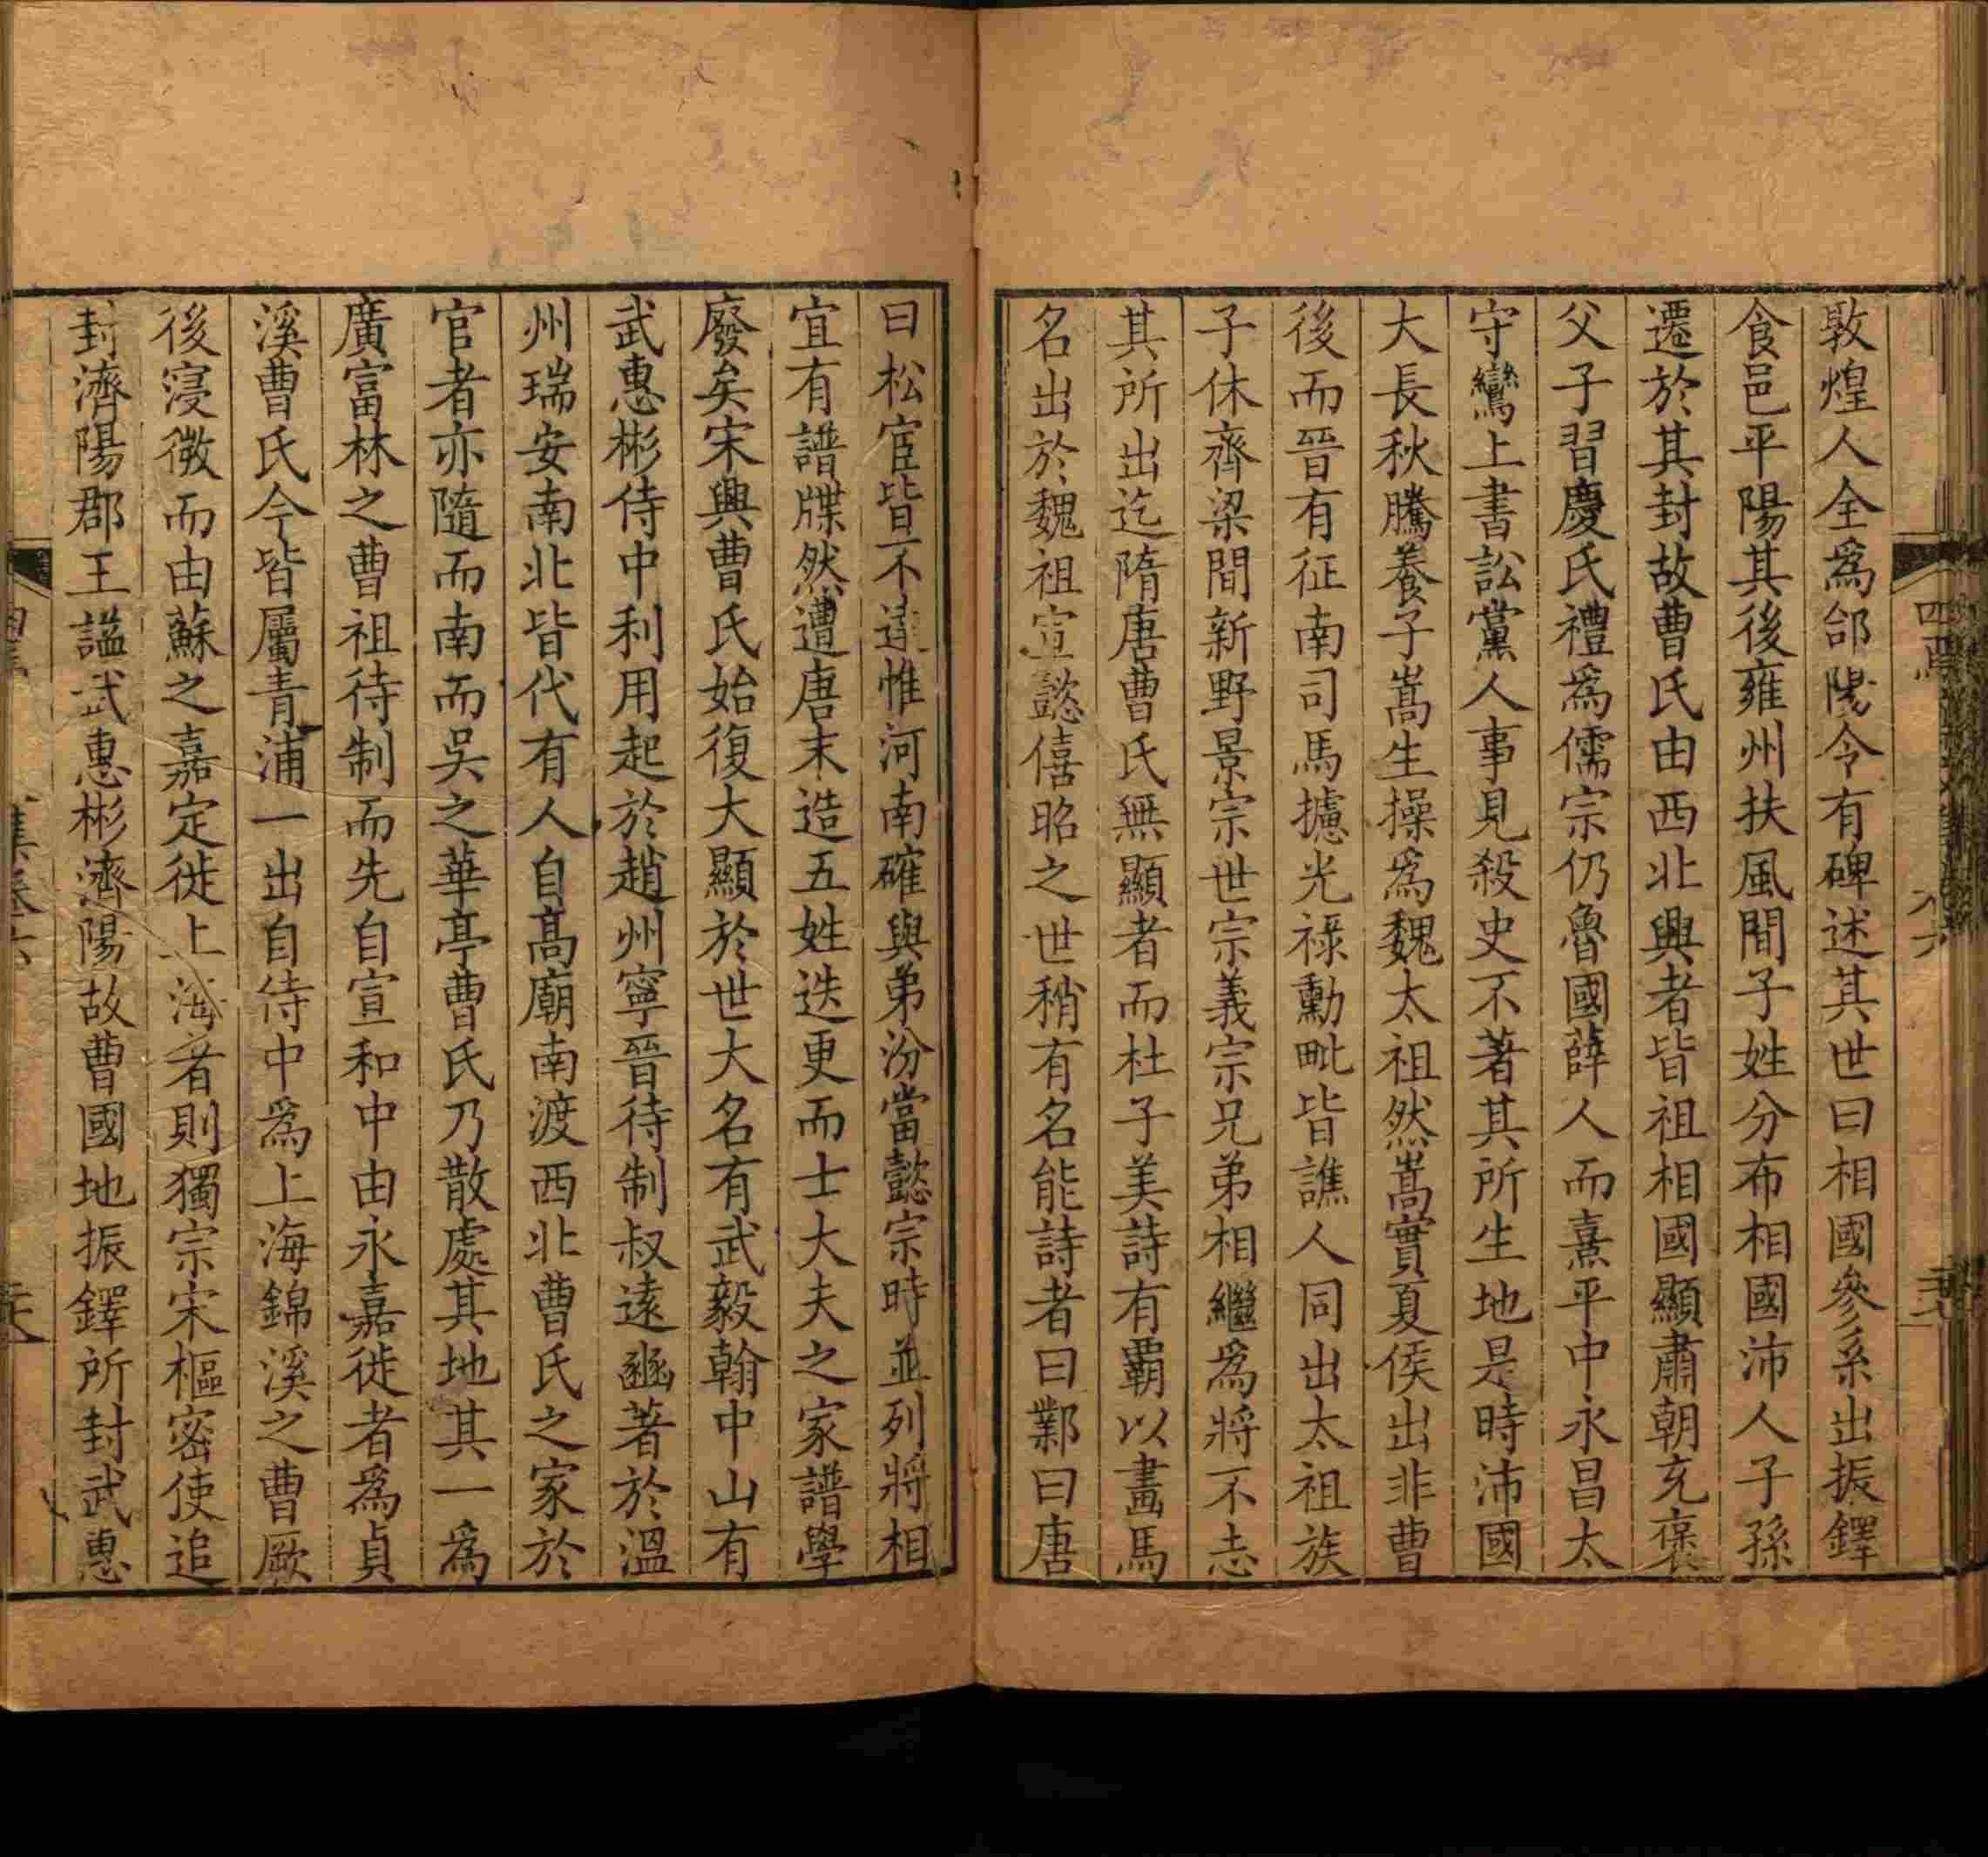 敦煌人全爲郃陽令有碑述其世曰相國參系出振鐸
食邑平陽其後雍州扶風間子姓分布相國沛人子孫
遷於其封故曹氏由西北興者皆祖相國顯肅朝充褒
父子習慶氏禮爲儒宗仍魯國薛人而熹平中永昌太
守鸞上書訟黨人事見殺史不著其所生地是時沛國
大長秋騰養子嵩生操爲魏太祖然嵩實夏侯出非曹
後而晉有征南司馬攄光祿勳毗皆譙人同出太祖族
子休齊梁間新野景宗世宗義宗兄弟相繼爲將不志
其所出迄隋唐曹氏無顯者而杜子美詩有霸以畫馬
名出於魏祖宣懿僖昭之世稍有名能詩者曰鄴曰唐
曰松宦皆不達惟河南確與弟汾當懿宗時並列將相
宜有譜牒然遭唐末造五姓迭更而士大夫之家譜學
廢矣宋興曹氏始復大顯於世大名有武毅翰中山有
武惠彬侍中利用起於趙州寧晉待制叔遠豳著於溫
州瑞安南北皆代有人自高廟南渡西北曹氏之家於
官者亦隨而南而吳之華亭曹氏乃散處其地其一爲
廣富林之曹祖待制而先自宣和中由永嘉徙者爲貞
溪曹氏今皆屬青浦一出自侍中爲上海錦溪之曹厥
後寖微而由蘇之嘉定徙上海者則獨宗宋樞密使追
封濟陽郡王謚武惠彬濟陽故曹國地振鐸所封武惠